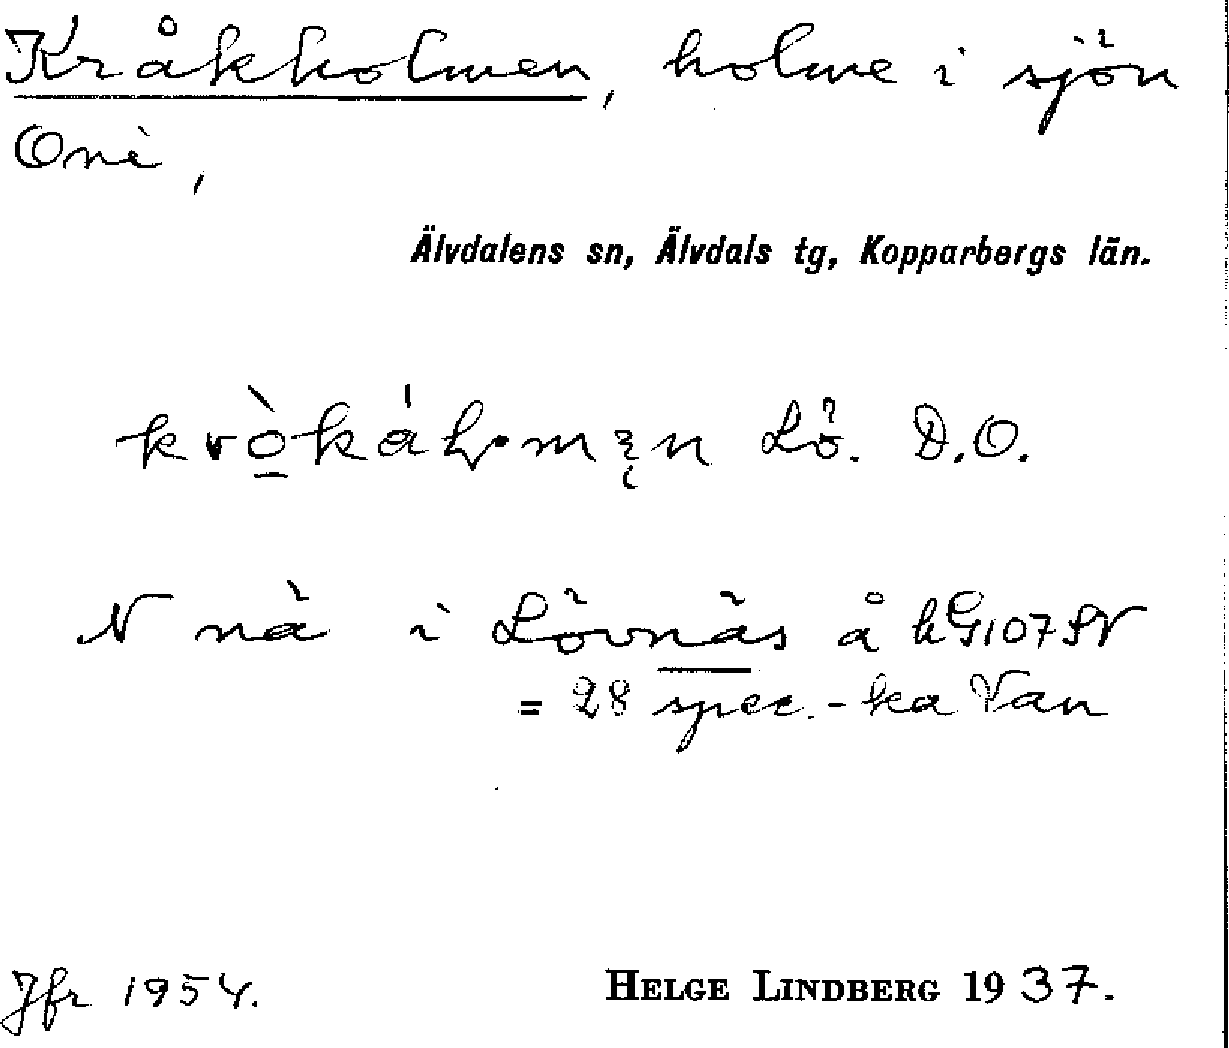 Kråkholmen, holme i sjön
Oni,
Älvdalens sn, Älvdals tg, Kopparbergs län.
Lö. D.O.
N nä i Lövnäs å
= 28 spec. - ka Van
Jfr 1954.
HELGE LINDBERG 1937.